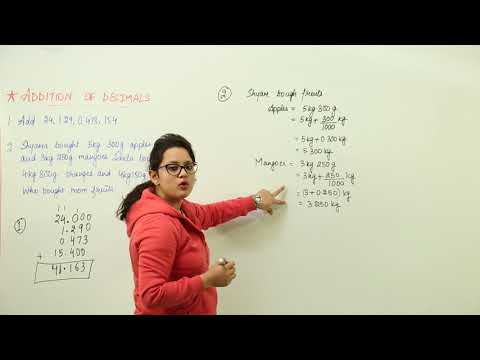 ★ ADDITION OF DECIMALS
1. Add 24, 1.29, 0.473, 15.4
2. Shyam bought 5kg 300g apples
and 3kg 250g mangoes. Sarala bou
4kg 800g oranges and 4kg 150g
Who bought more fruits
①
1 1
24.000
1.290
0.473
+ 15.400
41.163
② Shyam bough fruits
Apples = 5kg 300g
= 5kg + 300 kg
1000
= 5kg + 0.300 kg
= 5.300 kg
Mangoes = 3kg 250g
= 3kg + 250 kg
1000
= (3 + 0.250) kg
= 3.250 kg